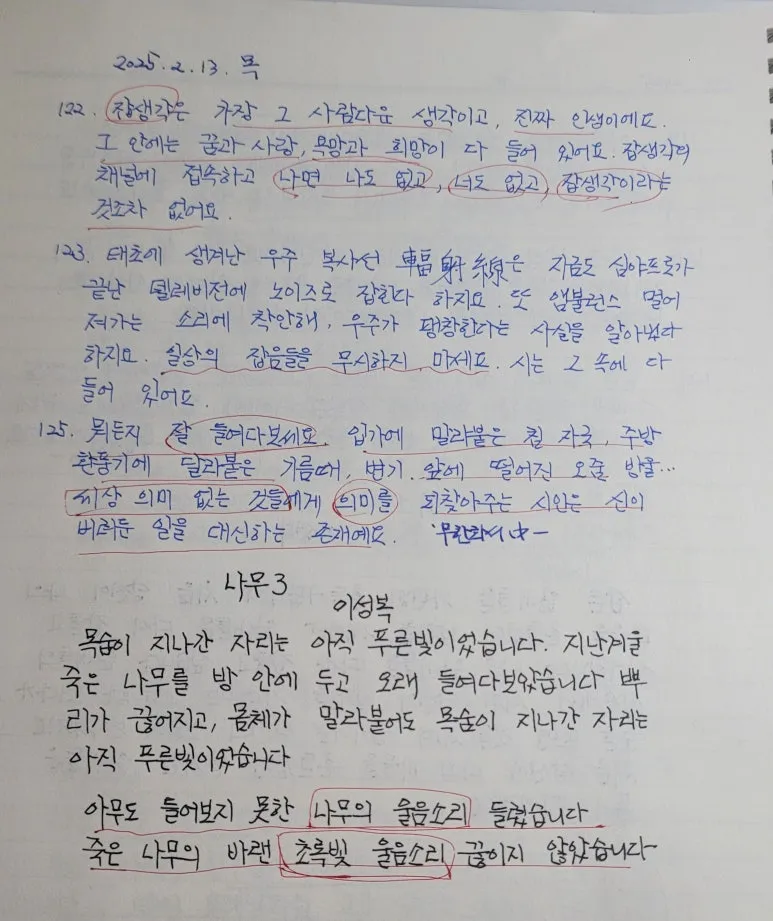 2025. 2. 13. 목
122. 잡생각은 가장 그 사람다운 생각이고, 진짜 인생이에요.
그 안에는 꿈과 사랑, 욕망과 희망이 다 들어 있어요. 잡생각의
채널에 접속하고 나면 나도 없고, 너도 없고, 잡생각이라는
것조차 없어요.
123. 태초에 생겨난 우주 복사선 輻射線은 지금도 심야프로가
끝난 텔레비전에 노이즈로 잡힌다 하지요. 또 앰뷸런스 멀어
져가는 소리에 착안해, 우주가 팽창한다는 사실을 알아냈다
하지요. 일상의 잡음들을 무시하지 마세요. 시는 그 속에 다
들어 있어요.
125. 뭐든지 잘 들여다보세요. 입가에 말라붙은 침 자국, 주방
환풍기에 달라붙은 기름때, 변기 앞에 떨어진 오줌 방울...
세상 의미 없는 것들에게 의미를 되찾아주는 시인은 신이
버려둔 일을 대신하는 존재예요. 무한화서 中-
나무 3
이성복
목숨이 지나간 자리는 아직 푸른빛이었습니다. 지난겨울
죽은 나무를 방 안에 두고 오래 들여다보았습니다 뿌
리가 끊어지고, 몸체가 말라붙어도 목숨이 지나간 자리는
아직 푸른빛이었습니다
아무도 들어보지 못한 나무의 울음소리 들렸습니다
죽은 나무의 바랜 초록빛 울음소리 끊이지 않았습니다